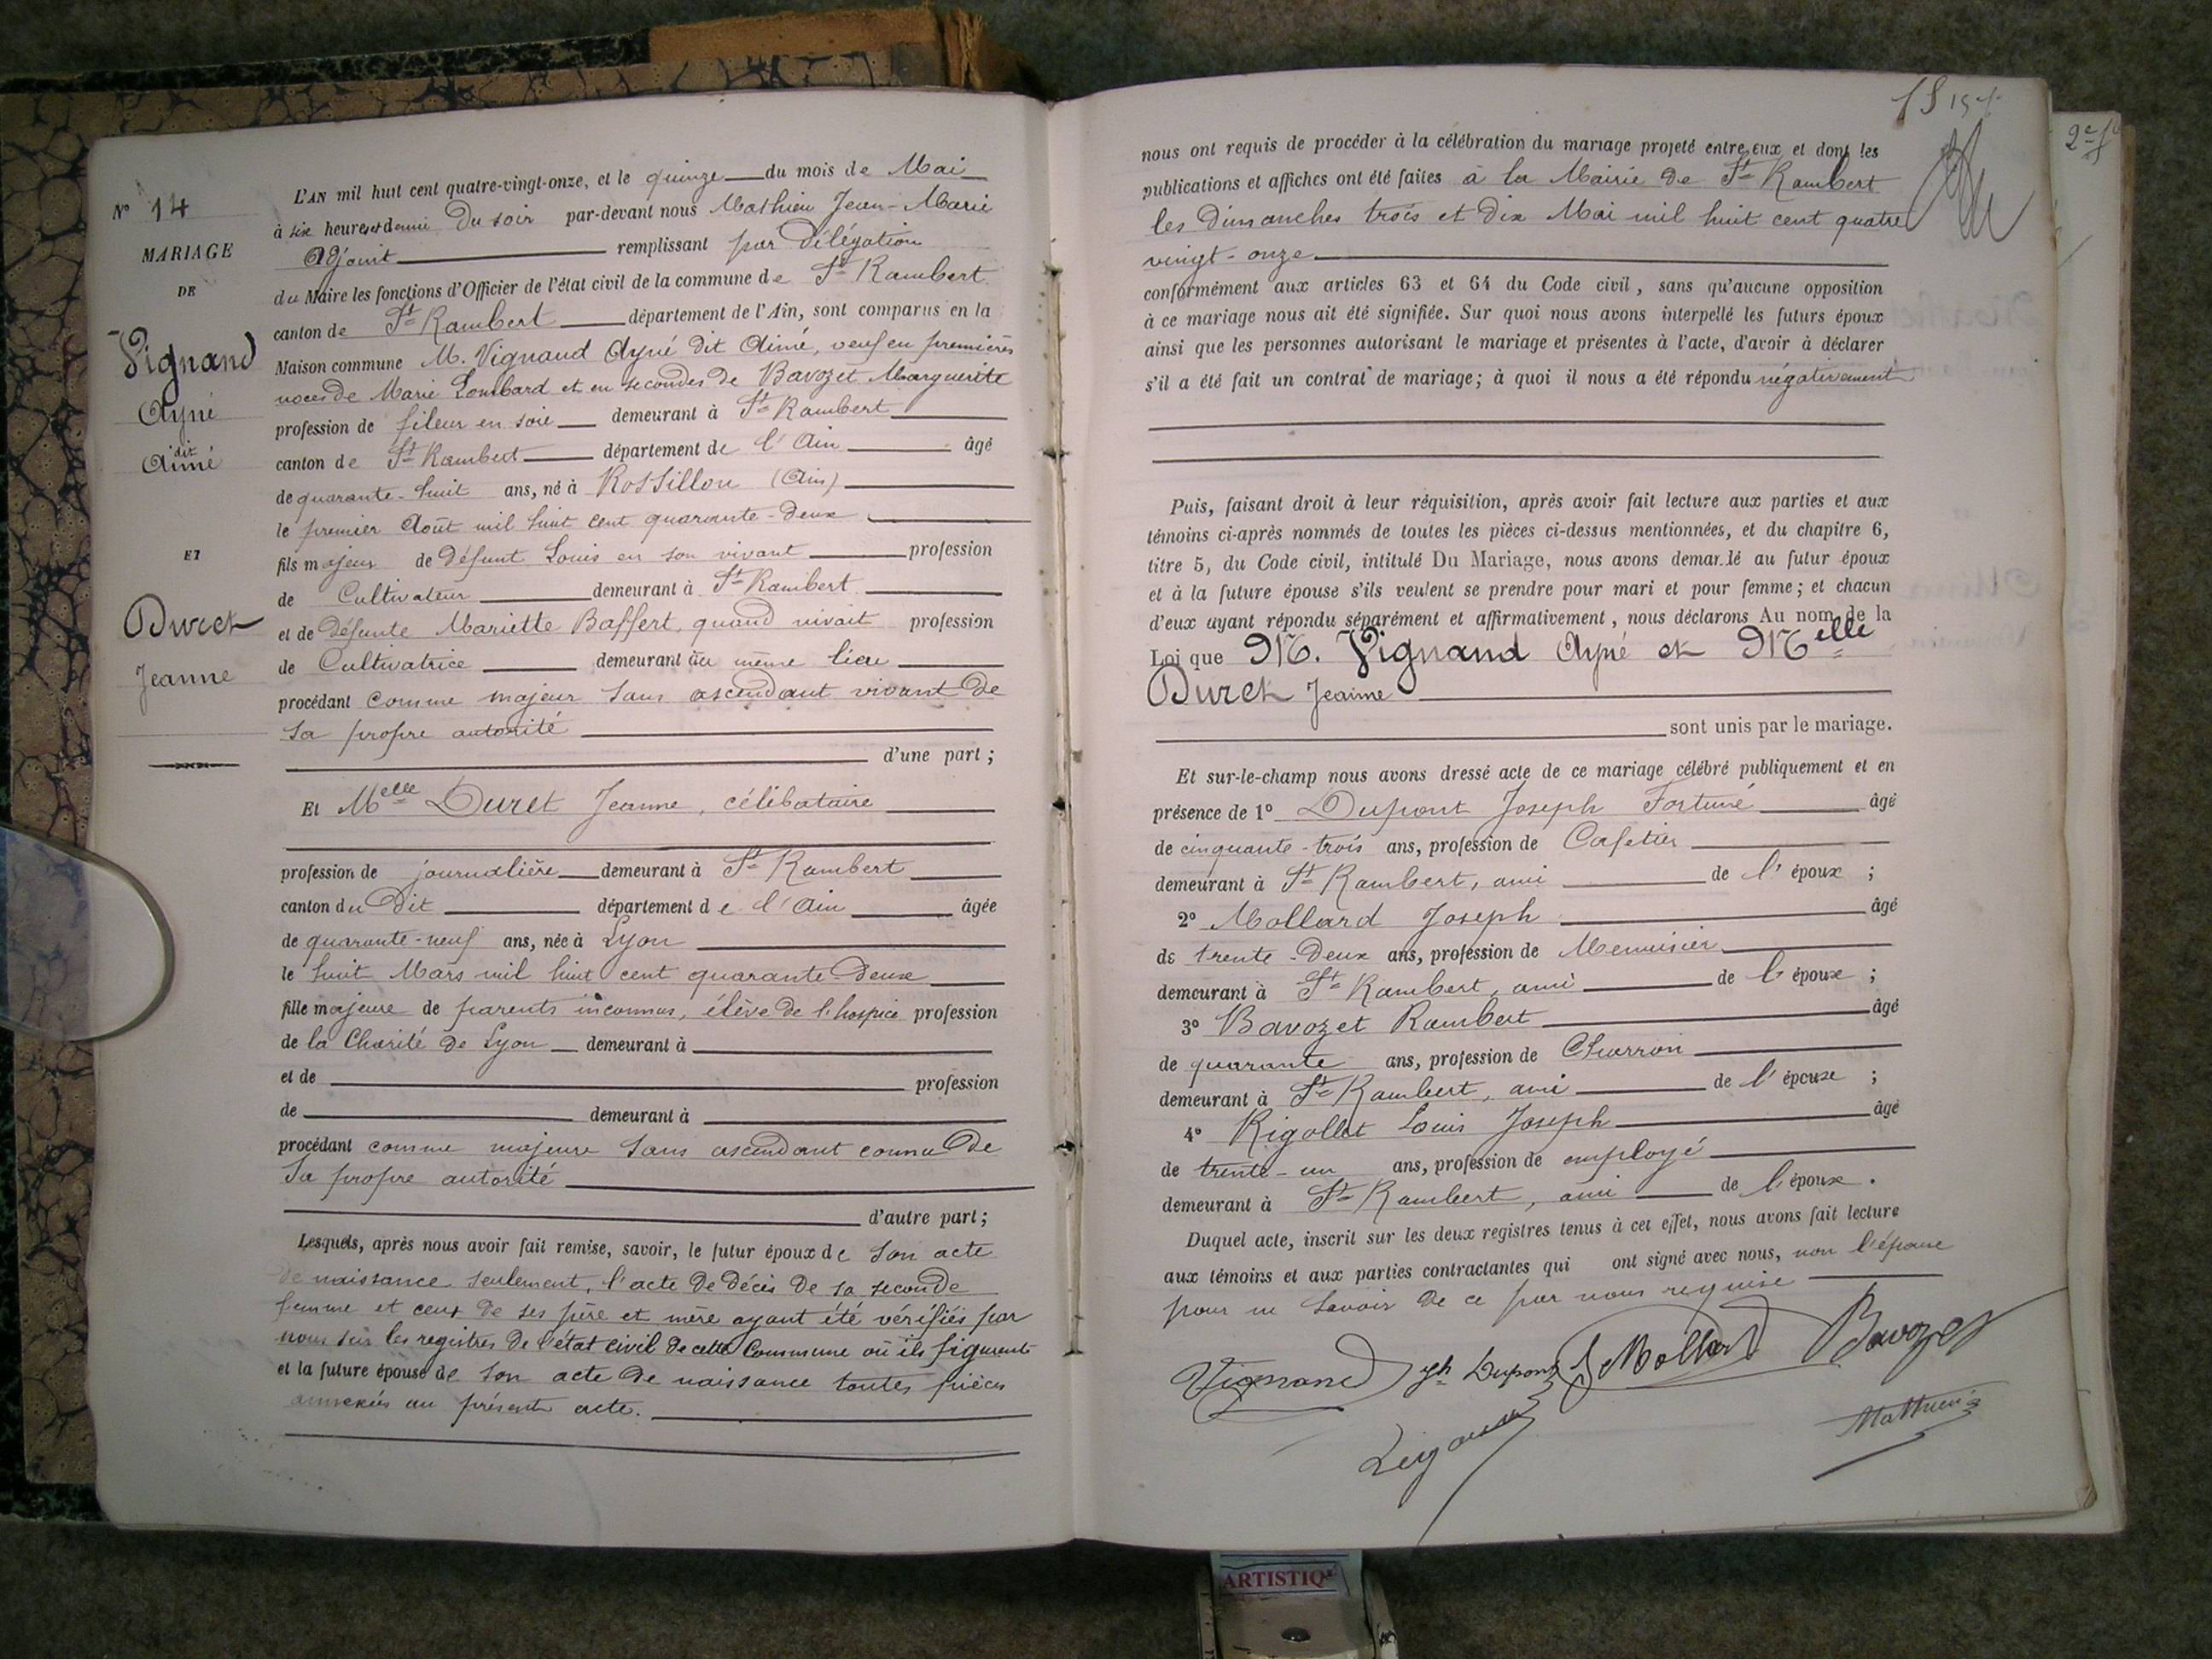 N° 14
MARIAGE
DE
Vignand
Ayné
dit
Aimé
ET
Duret
Jeanne
L'AN mil huit cent quatre-vingt-onze, et le quinze du mois de Mai
à six heures et demie du soir par-devant nous Mathieu Jean-Marie
Adjoint remplissant par délégation
du Maire les fonctions d'Officier de l'état civil de la commune de St Rambert
canton de St Rambert département de l'Ain, sont comparus en la
Maison commune M. Vignand Ayné dit Aimé, veuf en premières
noces de Marie Lombard et en secondes de Bavozet Marguerite
profession de fileur en soie demeurant à St Rambert
canton de St Rambert département de l'Ain âgé
de quarante-huit ans, né à Rossillon (Ain)
le premier Août mil huit cent quarante-deux
fils majeur de défunt Louis en son vivant profession
de Cultivateur demeurant à St Rambert
et de défunte Mariette Baffert, quand vivait profession
de Cultivatrice demeurant au même lieu
procédant comme majeur sans ascendant vivant de
sa propre autorité
d'une part ;
Et Melle Duret Jeanne, célibataire
profession de journalière demeurant à St Rambert
canton du dit département de l'Ain âgée
de quarante-neuf ans, née à Lyon
le huit Mars mil huit cent quarante-deux
fille majeure de parents inconnus, élève de l'hospice profession
de la Charité de Lyon demeurant à
et de profession
de demeurant à
procédant comme majeure sans ascendant connu de
sa propre autorité
d'autre part ;
Lesquels, après nous avoir fait remise, savoir, le futur époux de son acte
de naissance seulement, l'acte de décès de sa seconde
femme et ceux de ses père et mère ayant été vérifiés par
nous sur les registres de l'état civil de cette Commune où ils figurent
et la future épouse de son acte de naissance toutes pièces
annexées au présent acte.
15
nous ont requis de procéder à la célébration du mariage projeté entre eux et dont les
publications et affiches ont été faites à la Mairie de St Rambert
les dimanches trois et dix Mai mil huit cent quatre
vingt-onze
conformément aux articles 63 et 64 du Code civil, sans qu'aucune opposition
à ce mariage nous ait été signifiée. Sur quoi nous avons interpellé les futurs époux
ainsi que les personnes autorisant le mariage et présentes à l'acte, d'avoir à déclarer
s'il a été fait un contrat de mariage ; à quoi il nous a été répondu négativement
Puis, faisant droit à leur réquisition, après avoir fait lecture aux parties et aux
témoins ci-après nommés de toutes les pièces ci-dessus mentionnées, et du chapitre 6,
titre 5, du Code civil, intitulé Du Mariage, nous avons demandé au futur époux
et à la future épouse s'ils veulent se prendre pour mari et pour femme ; et chacun
d'eux ayant répondu séparément et affirmativement, nous déclarons Au nom de la
Loi que M. Vignand Ayné et Melle
Duret Jeanne
sont unis par le mariage.
Et sur-le-champ nous avons dressé acte de ce mariage célébré publiquement et en
présence de 1° Dupont Joseph Fortuné âgé
de cinquante-trois ans, profession de Cafetier
demeurant à St Rambert, ami de l'époux ;
2° Mollard Joseph âgé
de trente-deux ans, profession de Menuisier
demeurant à St Rambert, ami de l'époux ;
3° Bavozet Rambert âgé
de quarante ans, profession de Charron
demeurant à St Rambert, ami de l'épouse ;
4° Rigollet Louis Joseph âgé
de trente-un ans, profession de employé
demeurant à St Rambert, ami de l'époux.
Duquel acte, inscrit sur les deux registres tenus à cet effet, nous avons fait lecture
aux témoins et aux parties contractantes qui ont signé avec nous, non l'épouse
pour ne savoir de ce par nous requise
Vignand Jh Dupont J Mollard Bavozet
Mathieu
ARTISTIQ